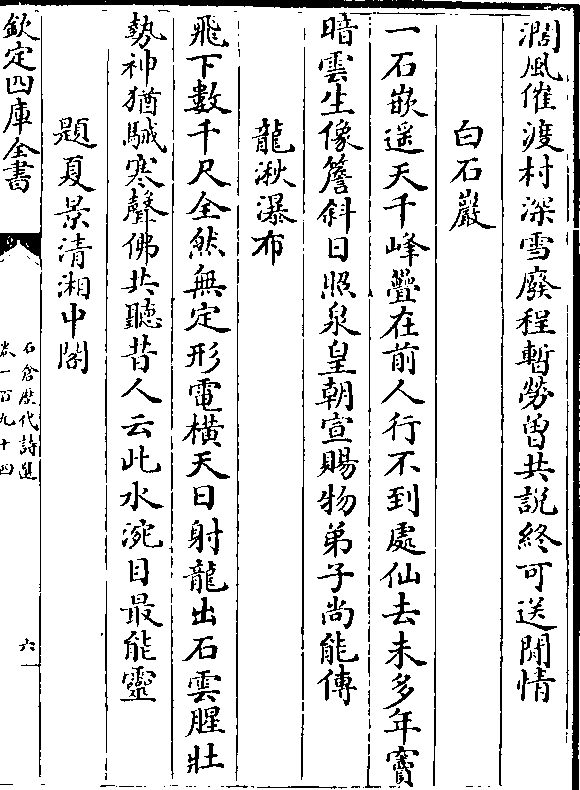 濶風催渡村深雪廢程暫勞曾共説終可送閒情
白石巖
一石嵌遥天千峰疊在前人行不到處仙去未多年竇
暗雲生像簷斜日照泉皇朝宣賜物弟子尚能傳
龍湫瀑布
飛下數千尺全然無定形電横天日射龍出石雲腥壯
勢神猶駴寒聲佛共聽昔人云此水洗目最能靈
題夏景清湘中閣
欽定四庫全書
石倉歴代詩選
卷一百九十四
六